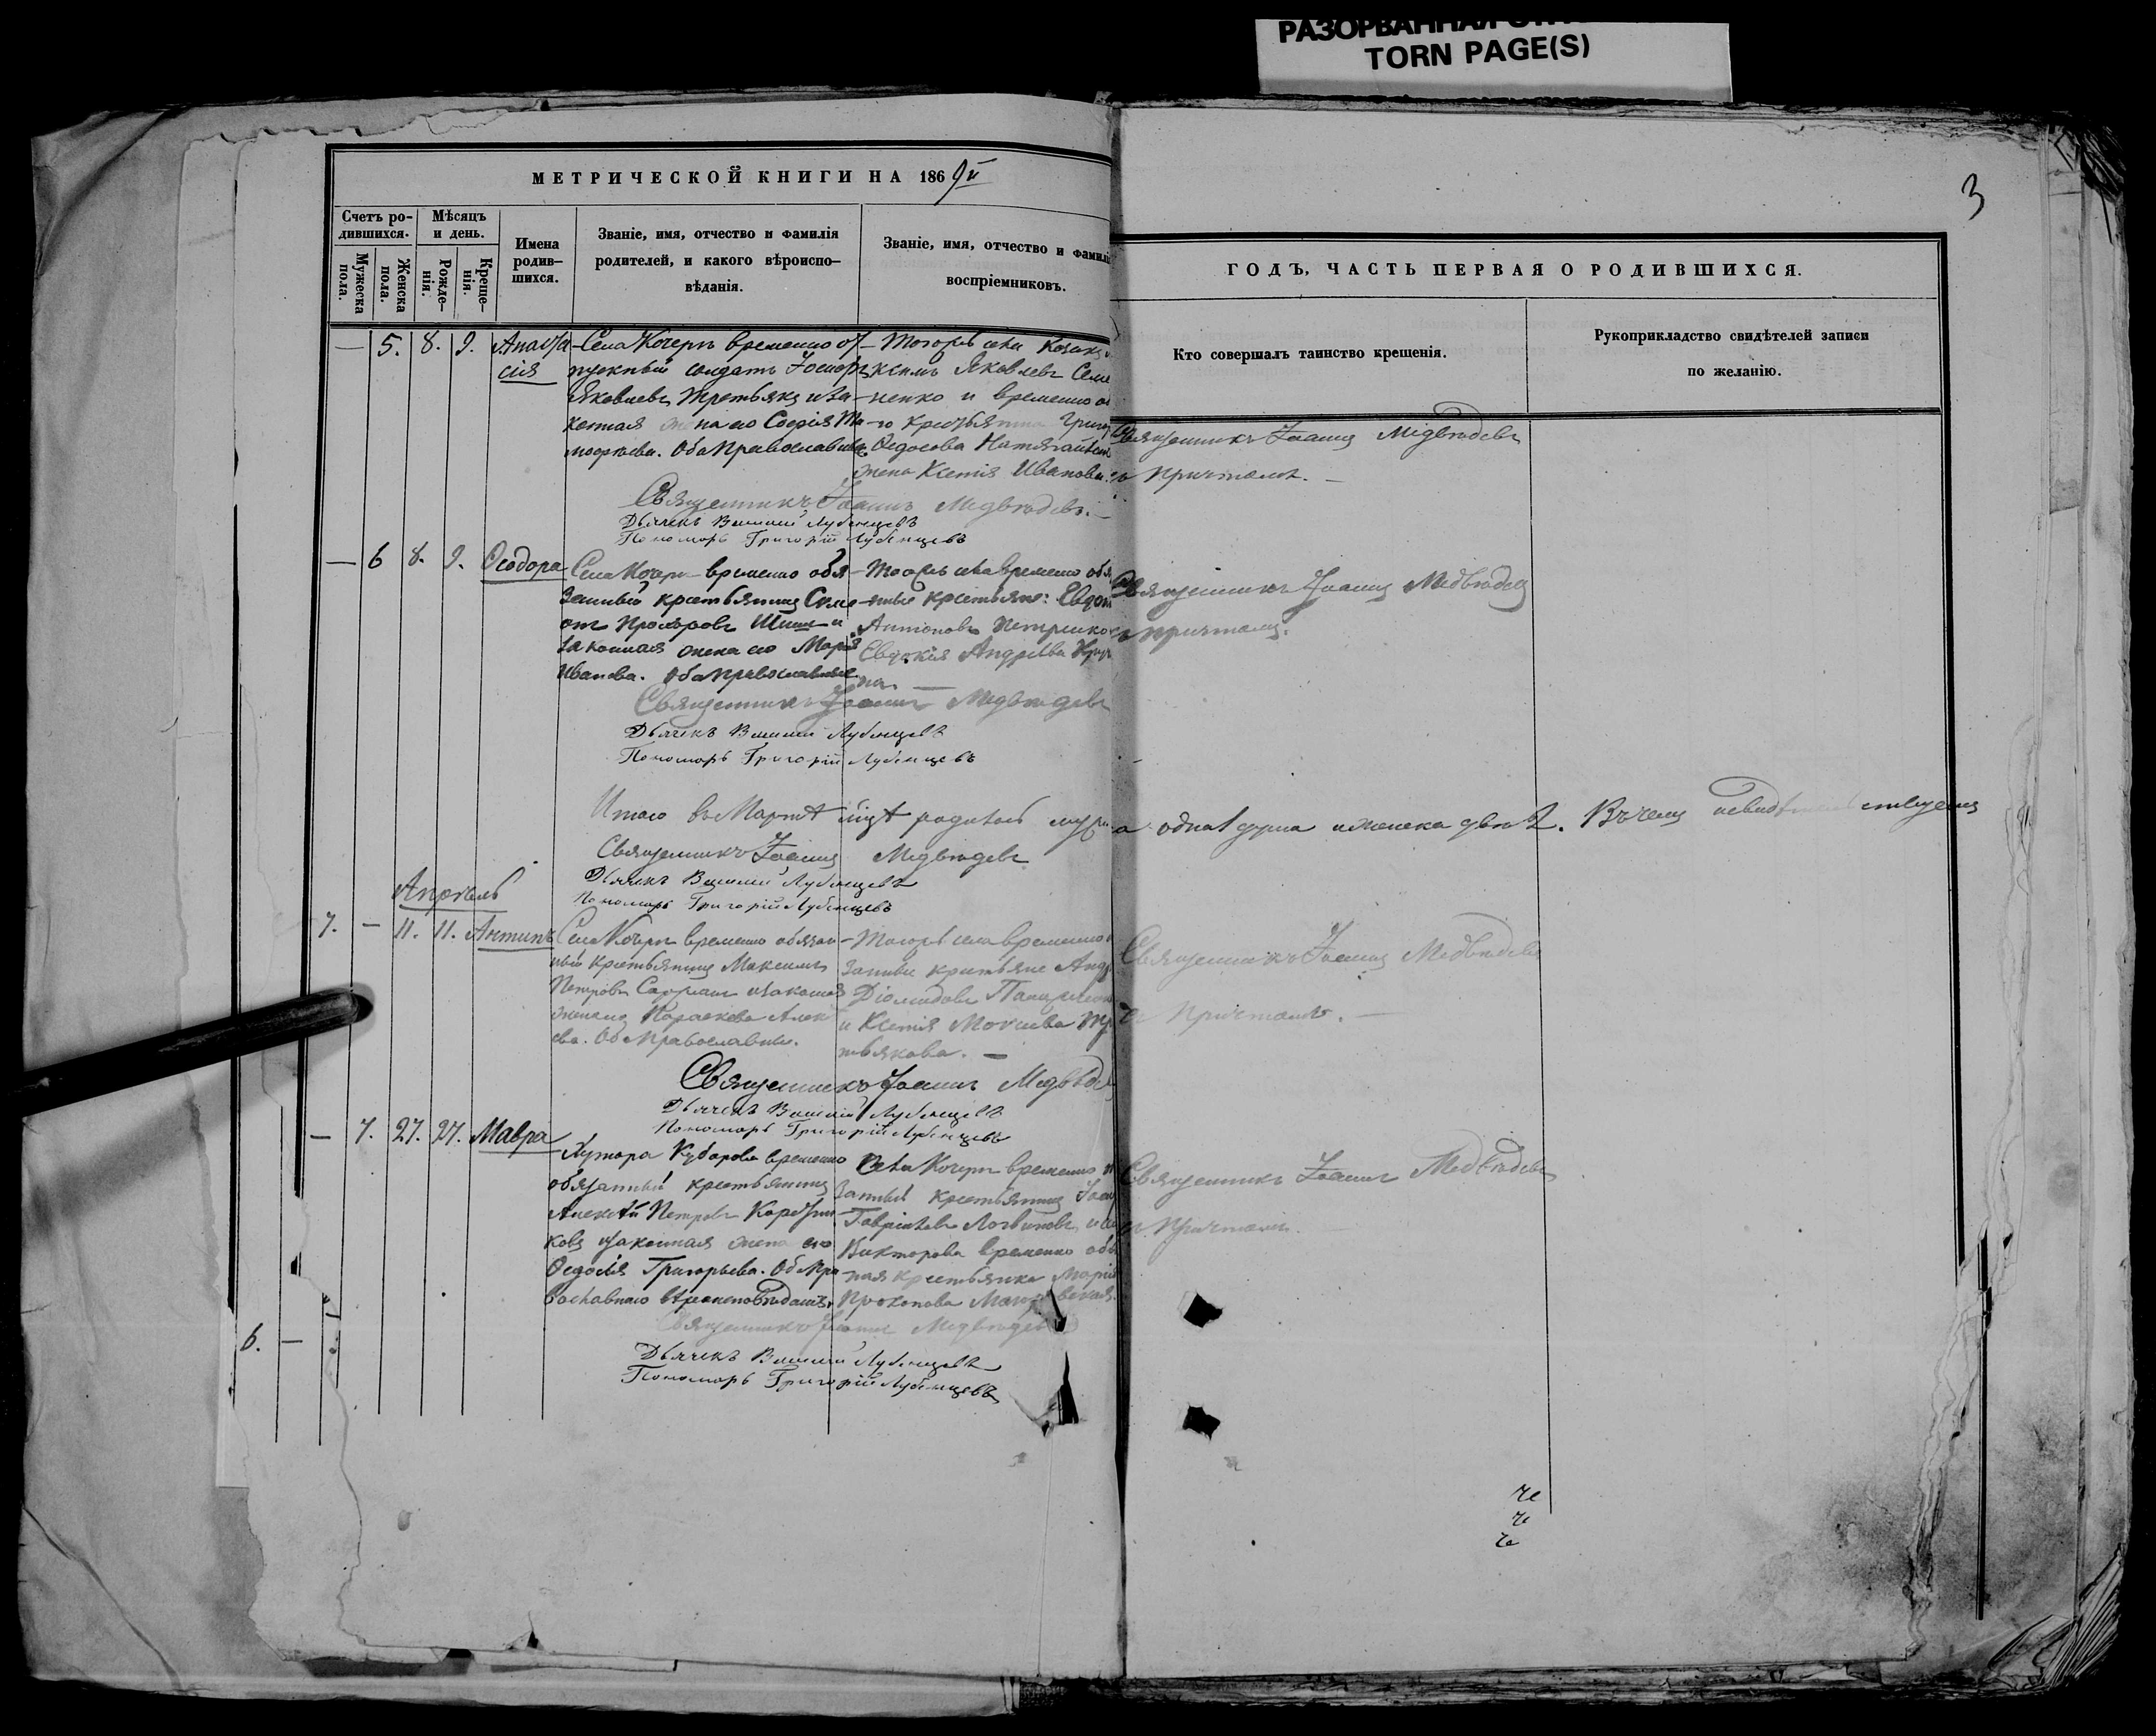 РАЗОРВАННАЯ
TORN PAGE(S)
3
МЕТРИЧЕСКОЙ КНИГИ НА 1869й
ГОДЪ, ЧАСТЬ ПЕРВАЯ О РОДИВШИХСЯ.
Счетъ ро-
дившихся.
Мужеска
пола.
Женска
пола.
Мѣсяцъ
и день.
Рожде-
нія.
Креще-
нія.
Имена
родив-
шихся.
Званіе, имя, отчество и фамилія
родителей, и какого вѣроиспо-
вѣданія.
Званіе, имя, отчество и фамилі
воспріемниковъ.
Кто совершалъ таинство крещенія.
Рукоприкладство свидѣтелей записи
по желанію.
— 5. 8. 9. Анаста
сія
Села Кочеръ временно от
пускный солдатъ
Яковлевъ Третьякъ и за
конная жена его Софія Ти
мофѣева. Оба Православные.
Тогожъ села Козакъ
Яковлевъ Семе
ненко и временно об
го крестьянина Григ
Ѳедосова
жена Ксенія Иванова.
Священникъ Іоаннъ Медвѣдевъ
съ причтомъ. —
Священникъ Іоаннъ Медвѣдевъ. —
Дьячекъ Василий Лубенцевъ
Пономарь Григорій Лубенцевъ
— 6 8. 9. Ѳеодора
Села Кочеръ временно обя
занный крестьянинъ Симе
онъ Прохоровъ и
законная жена его Марія
Иванова. Оба православные
Тогожъ села временно обя
ные крестьяне: Евдок
Антоновъ Петренко
Евдокія Андреева
на. —
Священникъ Іоаннъ Медвѣдевъ
съ причтомъ.
Священникъ Іоаннъ Медвѣдевъ
Дьячекъ Василий Лубенцевъ
Пономарь Григорій Лубенцевъ
Итого въ Мартѣ мцѣ родилось муже
а одна душа и женска двѣ 2. Въ чемъ
Священникъ Іоаннъ Медвѣдевъ
Дьячекъ Василий Лубенцевъ
Пономарь Григорій Лубенцевъ
Апрѣль
7. — 11. 11. Антипъ
Села Кочеръ временно обязан
ный крестьянинъ Максимъ
Петровъ и законная
жена его Параскева Алек
ева. Оба Православные.
Тогожъ села временно о
занные крестьяне Андр
Діомидовъ
и Ксенія Моисеева Тре
тьякова. —
Священникъ Іоаннъ Медвѣдевъ
съ Причтомъ. —
Священникъ Іоаннъ Медвѣдев
Дьячекъ Василий Лубенцевъ
Пономарь Григорій Лубенцевъ
— 7. 27. 27. Мавра
Хутора Кубарова временно
обязанный крестьянинъ
Алексѣй Петровъ
ковъ и законная жена его
Ѳедосія Григорьева. Оба Пра
вославнаго вѣроисповѣданія.
Села Кочеръ временно о
занный крестьянинъ Іоан
Гавріиловъ Логвиновъ и
Викторова временно обя
ная крестьянка Марія
Прокопова
Священникъ Іоаннъ Медвѣдевъ
съ Причтомъ. —
Священникъ Іоаннъ Медвѣдевъ
Дьячекъ Василий Лубенцевъ
Пономарь Григорій Лубенцевъ
6. —